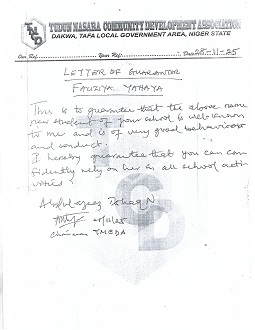 TUDUN NASARA COMMUNITY DEVELOPMENT ASSOCIATION
DAKWA, TAFA LOCAL GOVERNMENT AREA, NIGER STATE
Our Ref: Your Ref: Date 28-11-25
LETTER OF GUARANTOR
FAUZIYA YAHAYA
This is to guarantee that the above name
new student of your school is well-known
to me and is of very good behaviour
and conduct.
I hereby guarantee that you can con
fidently rely on her in all school acti
vities.
Abdulazeez Ishaq N
Chairman TNCDA